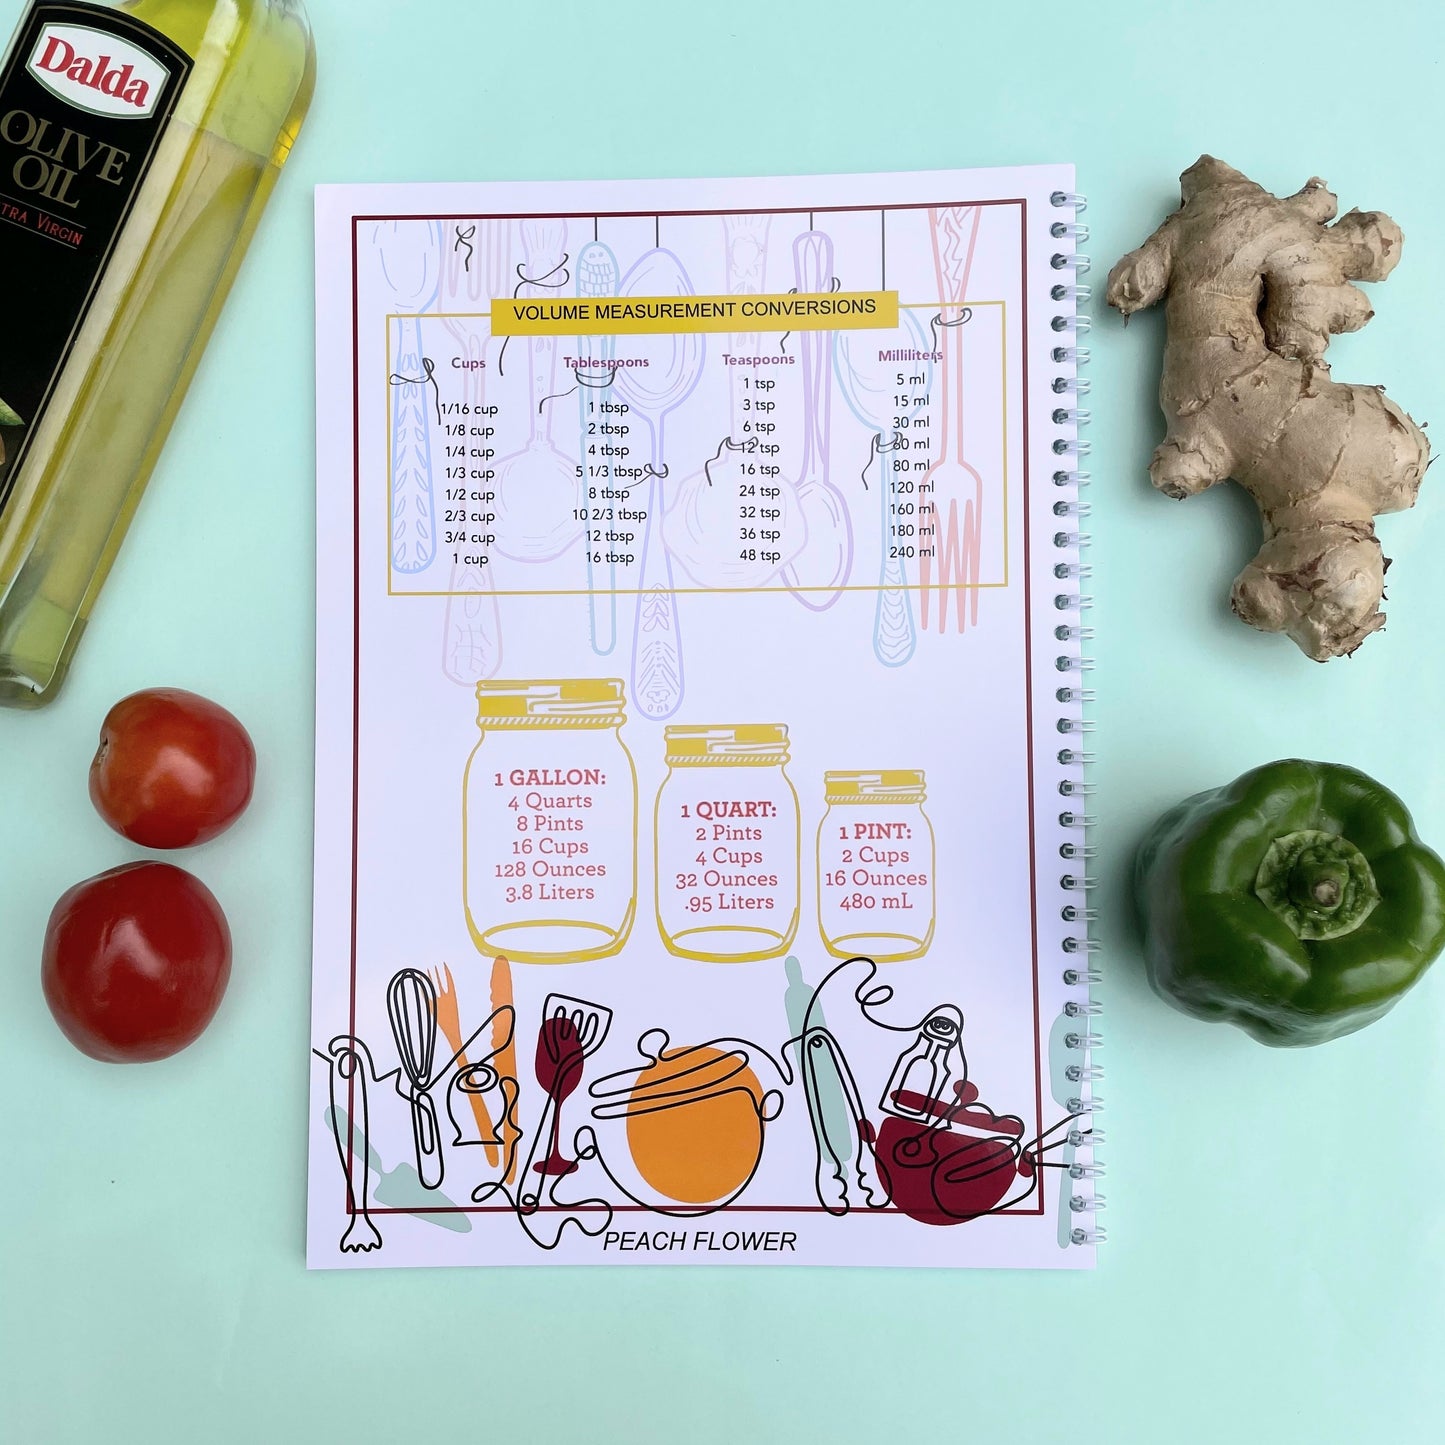 Dalda
OLIVE
OIL
TRA VIRGIN
VOLUME MEASUREMENT CONVERSIONS
Cups Tablespoons Teaspoons Milliliters
1 tsp 5 ml
1/16 cup 1 tbsp 3 tsp 15 ml
1/8 cup 2 tbsp 6 tsp 30 ml
1/4 cup 4 tbsp 12 tsp 60 ml
1/3 cup 5 1/3 tbsp 16 tsp 80 ml
1/2 cup 8 tbsp 24 tsp 120 ml
2/3 cup 10 2/3 tbsp 32 tsp 160 ml
3/4 cup 12 tbsp 36 tsp 180 ml
1 cup 16 tbsp 48 tsp 240 ml
1 GALLON:
4 Quarts
8 Pints
16 Cups
128 Ounces
3.8 Liters
1 QUART:
2 Pints
4 Cups
32 Ounces
.95 Liters
1 PINT:
2 Cups
16 Ounces
480 mL
PEACH FLOWER